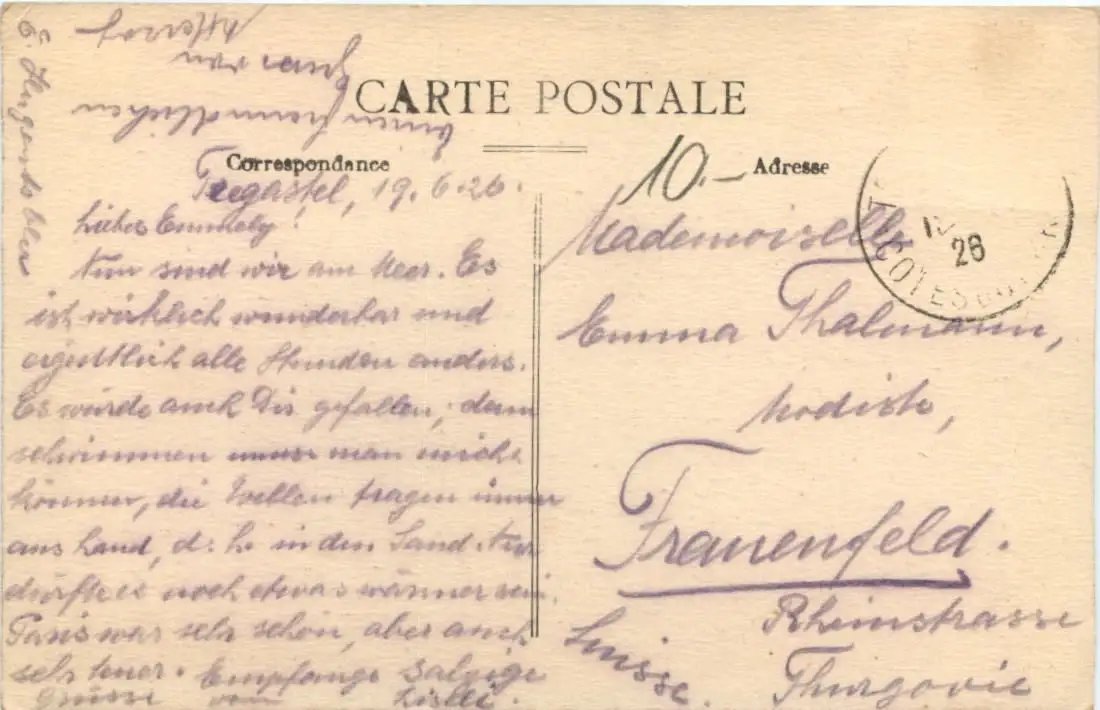 CARTE POSTALE
Correspondance
Adresse
10.-
Tregastel, 19. 6. 26.
Liebes Emmely!
Nun sind wir am Meer. Es
ist wirklich wunderbar und
eigentlich alle Stunden anders.
Es würde auch Dir gefallen, denn
schwimmen muss man nicht
können, die Wellen tragen immer
ans Land, d. h. in den Sand. Nur
dürfte es noch etwas wärmer sein.
Paris war sehr schön, aber auch
sehr teuer. Empfange salzige
Grüsse vom Lisbeli.
Einen freundlichen
Gruss von
Mademoiselle
Emma Thalmann,
Modiste,
Frauenfeld.
Rheinstrasse
Suisse. Thurgovie
26
COTES DU N